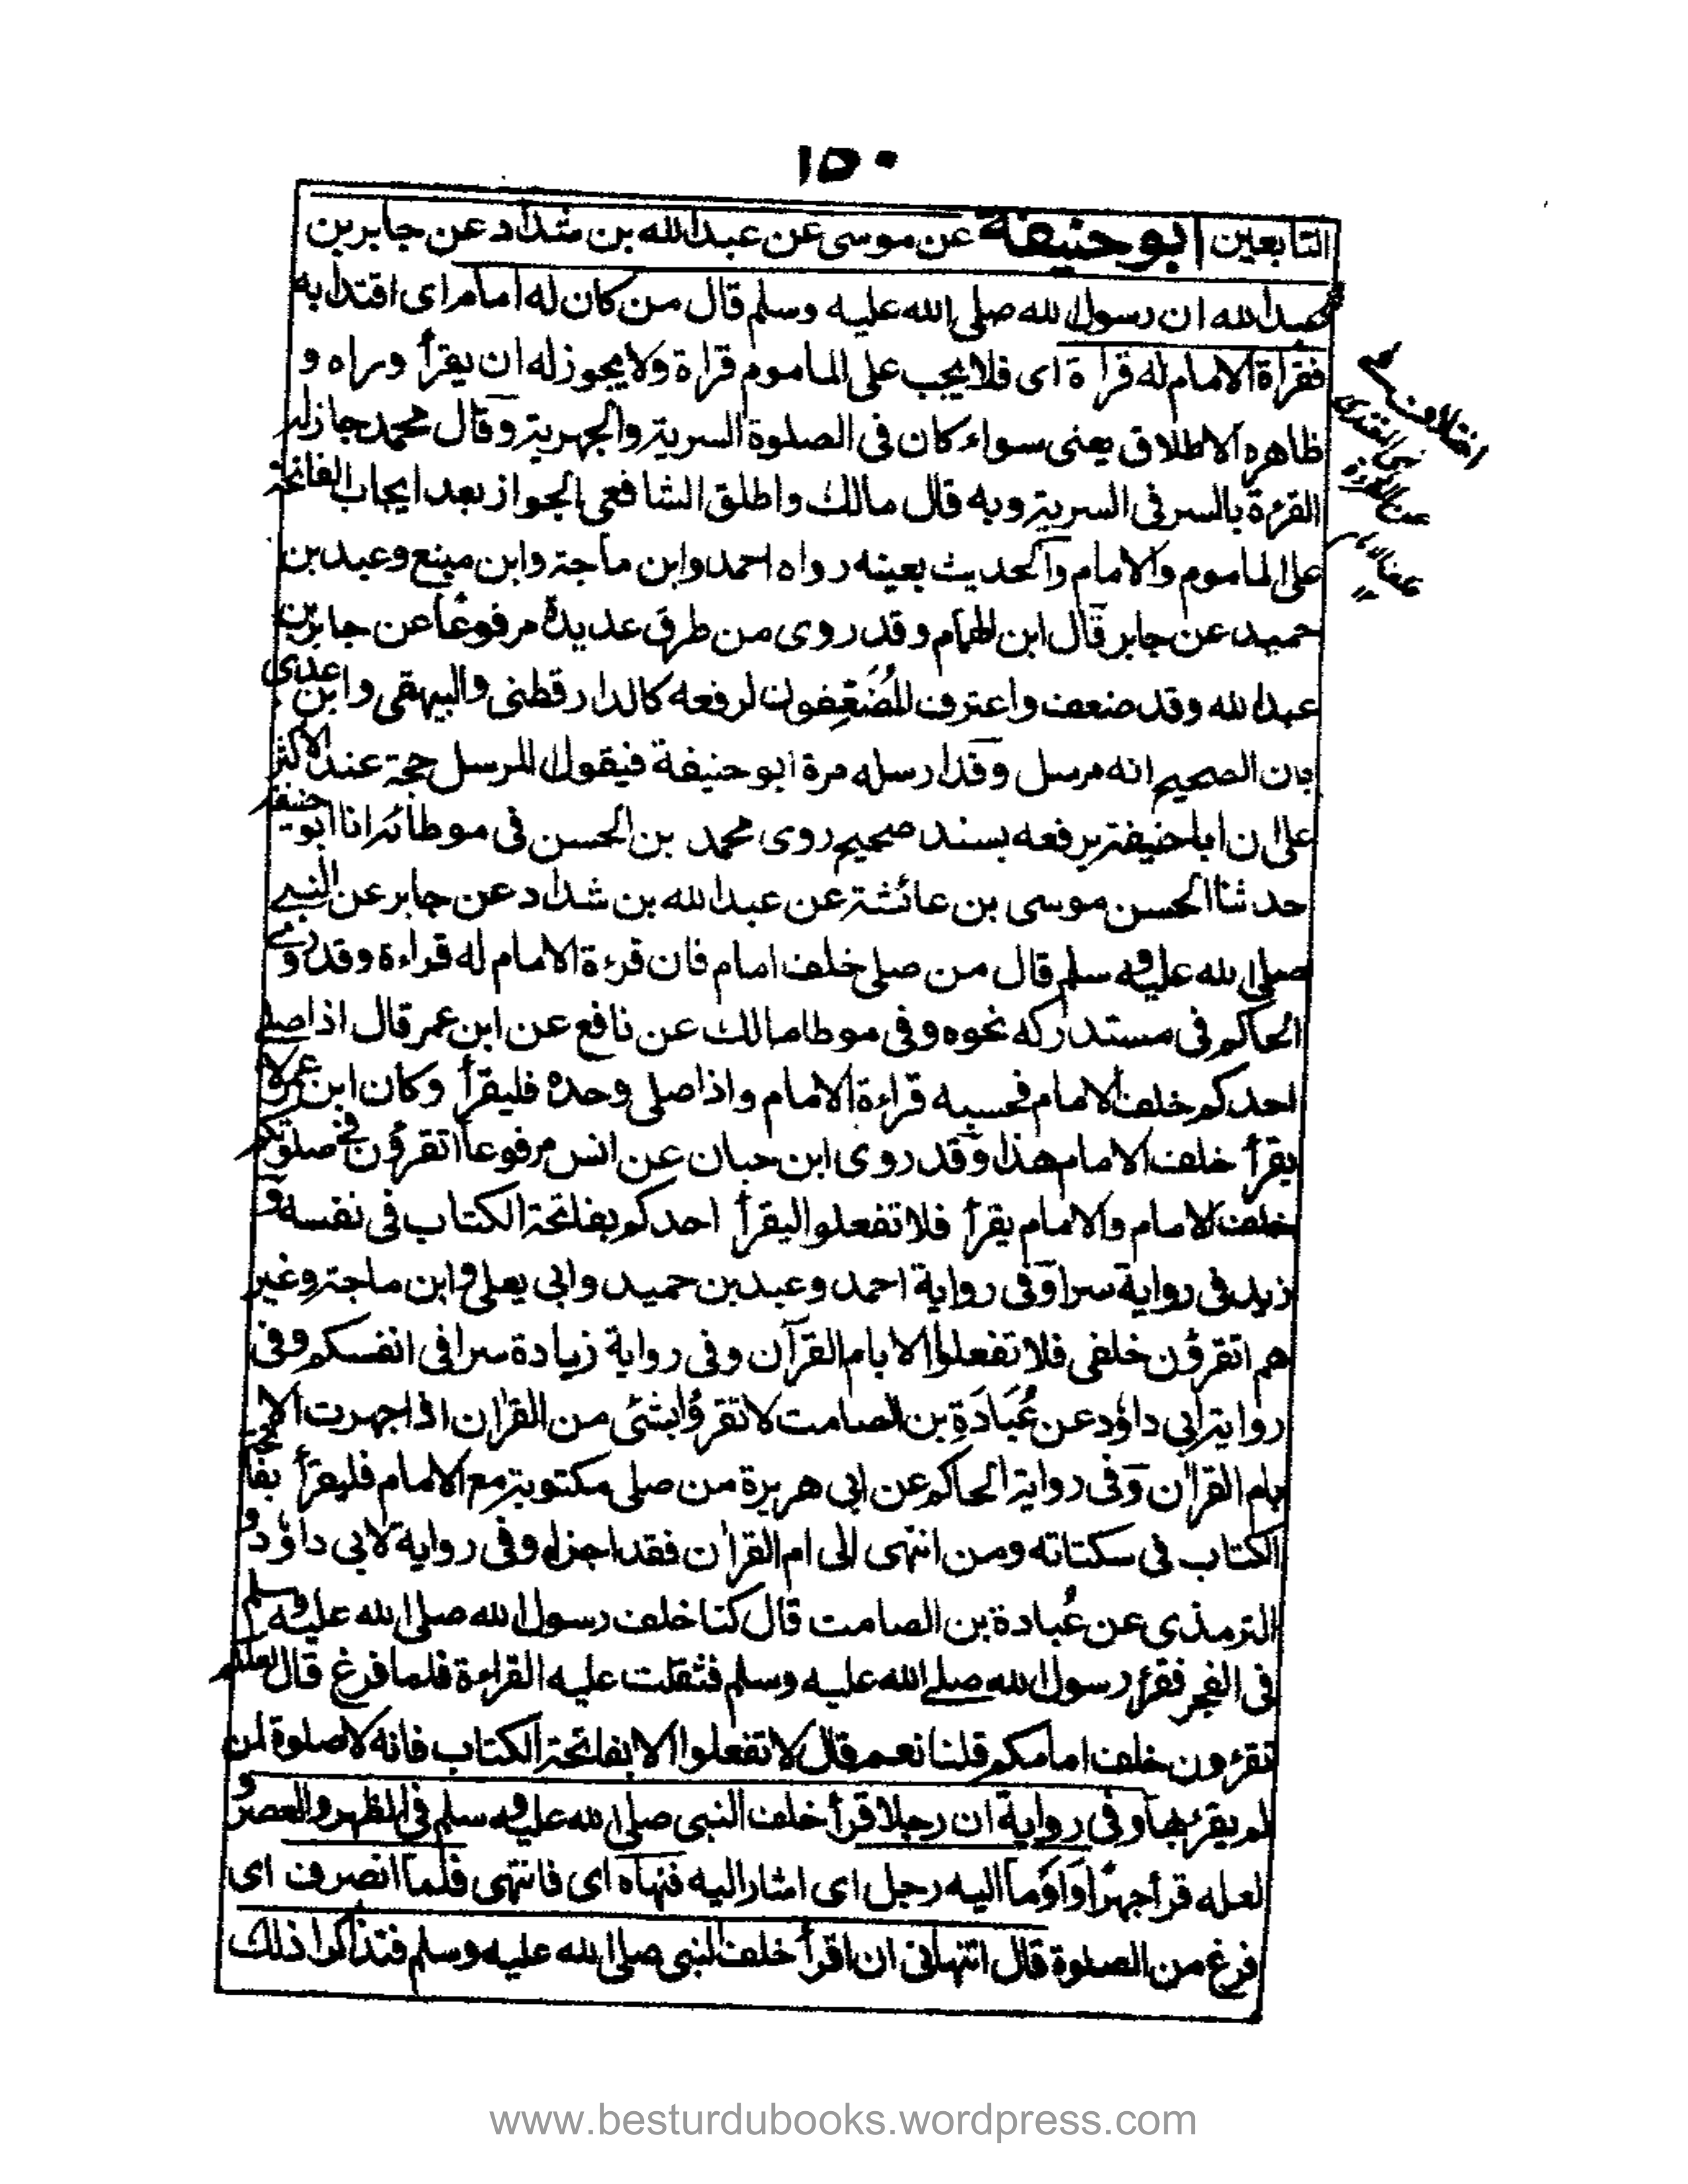 ١٥٠
التابعين ابو حنيفة عن موسى عن عبدالله بن شداد عن جابر بن
عبدالله ان رسول الله صلى الله عليه وسلم قال من كان له امام اى اقتدا به
فقراة الامام له قراة اى فلا يجب على الماموم قراءة ولا يجوز له ان يقرأ وراه و
ظاهره الاطلاق يعنى سواء كان فى الصلوة السرية والجهرية وقال محمد جاز له
القرءة بالسر فى السرية وبه قال مالك واطلق الشافعى الجواز بعد ايجاب الفاتحة
على الماموم والامام والحديث بعينه رواه احمد وابن ماجة وابن منيع وعبد بن
حميد عن جابر قال ابن الهمام وقد روى من طرق عديدة مرفوعا عن جابر بن
عبدالله وقد ضعف واعترف المُضَعِّفون لرفعه كالدارقطنى والبيهقى وابن عدى
بان الصحيح انه مرسل وقد ارسله مرة ابو حنيفة فيقول المرسل حجة عند الاكثر
على ان اباحنيفة يرفعه بسند صحيح روى محمد بن الحسن فى موطائه انا ابو حنيفة
حدثنا الحسن موسى بن عائشة عن عبدالله بن شداد عن جابر عن النبى
صلى الله عليه وسلم قال من صلى خلف امام فان قرءة الامام له قراءة وقد روى
الحاكم فى مستدركه نحوه وفى موطا مالك عن نافع عن ابن عمر قال اذا صلى
احدكم خلف الامام فحسبه قراءة الامام واذا صلى وحده فليقرأ وكان ابن عمر لا
يقرأ خلف الامام هذا وقد روى ابن حبان عن انس مرفوعا اتقرؤن فى صلوتكم
خلف الامام والامام يقرأ فلا تفعلوا ليقرأ احدكم بفاتحة الكتاب فى نفسه و
زيد فى رواية سرا وفى رواية احمد وعبد بن حميد وابى يعلى وابن ماجة وغير
هم اتقرؤن خلفى فلا تفعلوا الا بام القرآن وفى رواية زيادة سرا فى انفسكم وفى
رواية ابى داؤد عن عُبَادَةِ بن الصامت لا تقرؤا بشئى من القران اذا جهرت الا
بام القران وفى رواية الحاكم عن ابى هريرة من صلى مكتوبة مع الامام فليقرأ بفاتحة
الكتاب فى سكتاته ومن انتهى الى ام القران فقد اجزاه وفى رواية لابى داؤد و
الترمذى عن عُبادة بن الصامت قال كنا خلف رسول الله صلى الله عليه وسلم
فى الفجر فقرء رسول الله صلى الله عليه وسلم فثقلت عليه القراءة فلما فرغ قال لعلكم
تقرءون خلف امامكم قلنا نعم قال لا تفعلوا الا بفاتحة الكتاب فانه لاصلوة لمن
لم يقرء بها وفى رواية ان رجلا قرأ خلف النبى صلى الله عليه وسلم فى الظهر والعصر و
لعله قرأ جهرًا واَوْمأ اليه رجل اى اشار اليه فنهاه اى فانتهى فلما انصرف اى
فرغ من الصلوة قال اتنهانى ان اقرأ خلف النبى صلى الله عليه وسلم فتذاكرا ذلك
www.besturdubooks.wordpress.com